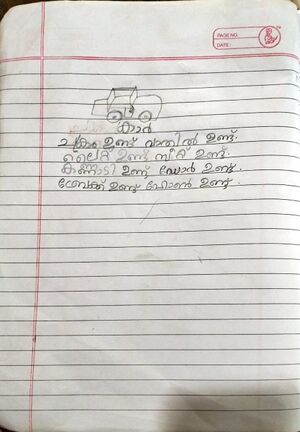 PAGE NO.
DATE:
കാർ
ചക്രം ഉണ്ട് വാതിൽ ഉണ്ട്.
ലൈറ്റ് ഉണ്ട് സീറ്റ് ഉണ്ട്.
കണ്ണാടി ഉണ്ട് ഡോർ ഉണ്ട്.
ബ്രേക്ക് ഉണ്ട് ഹോൺ ഉണ്ട്.